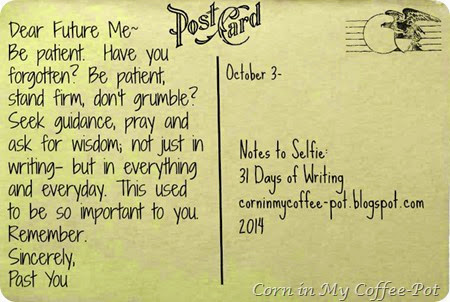 Post Card
Dear Future Me~
Be patient. Have you
forgotten? Be patient,
stand firm, don't grumble?
Seek guidance, pray and
ask for wisdom; not just in
writing- but in everything
and everyday. This used
to be so important to you.
Remember.
Sincerely,
Past You
October 3-
Notes to Selfie:
31 Days of Writing
corninmycoffee-pot.blogspot.com
2014
Corn in My Coffee-Pot